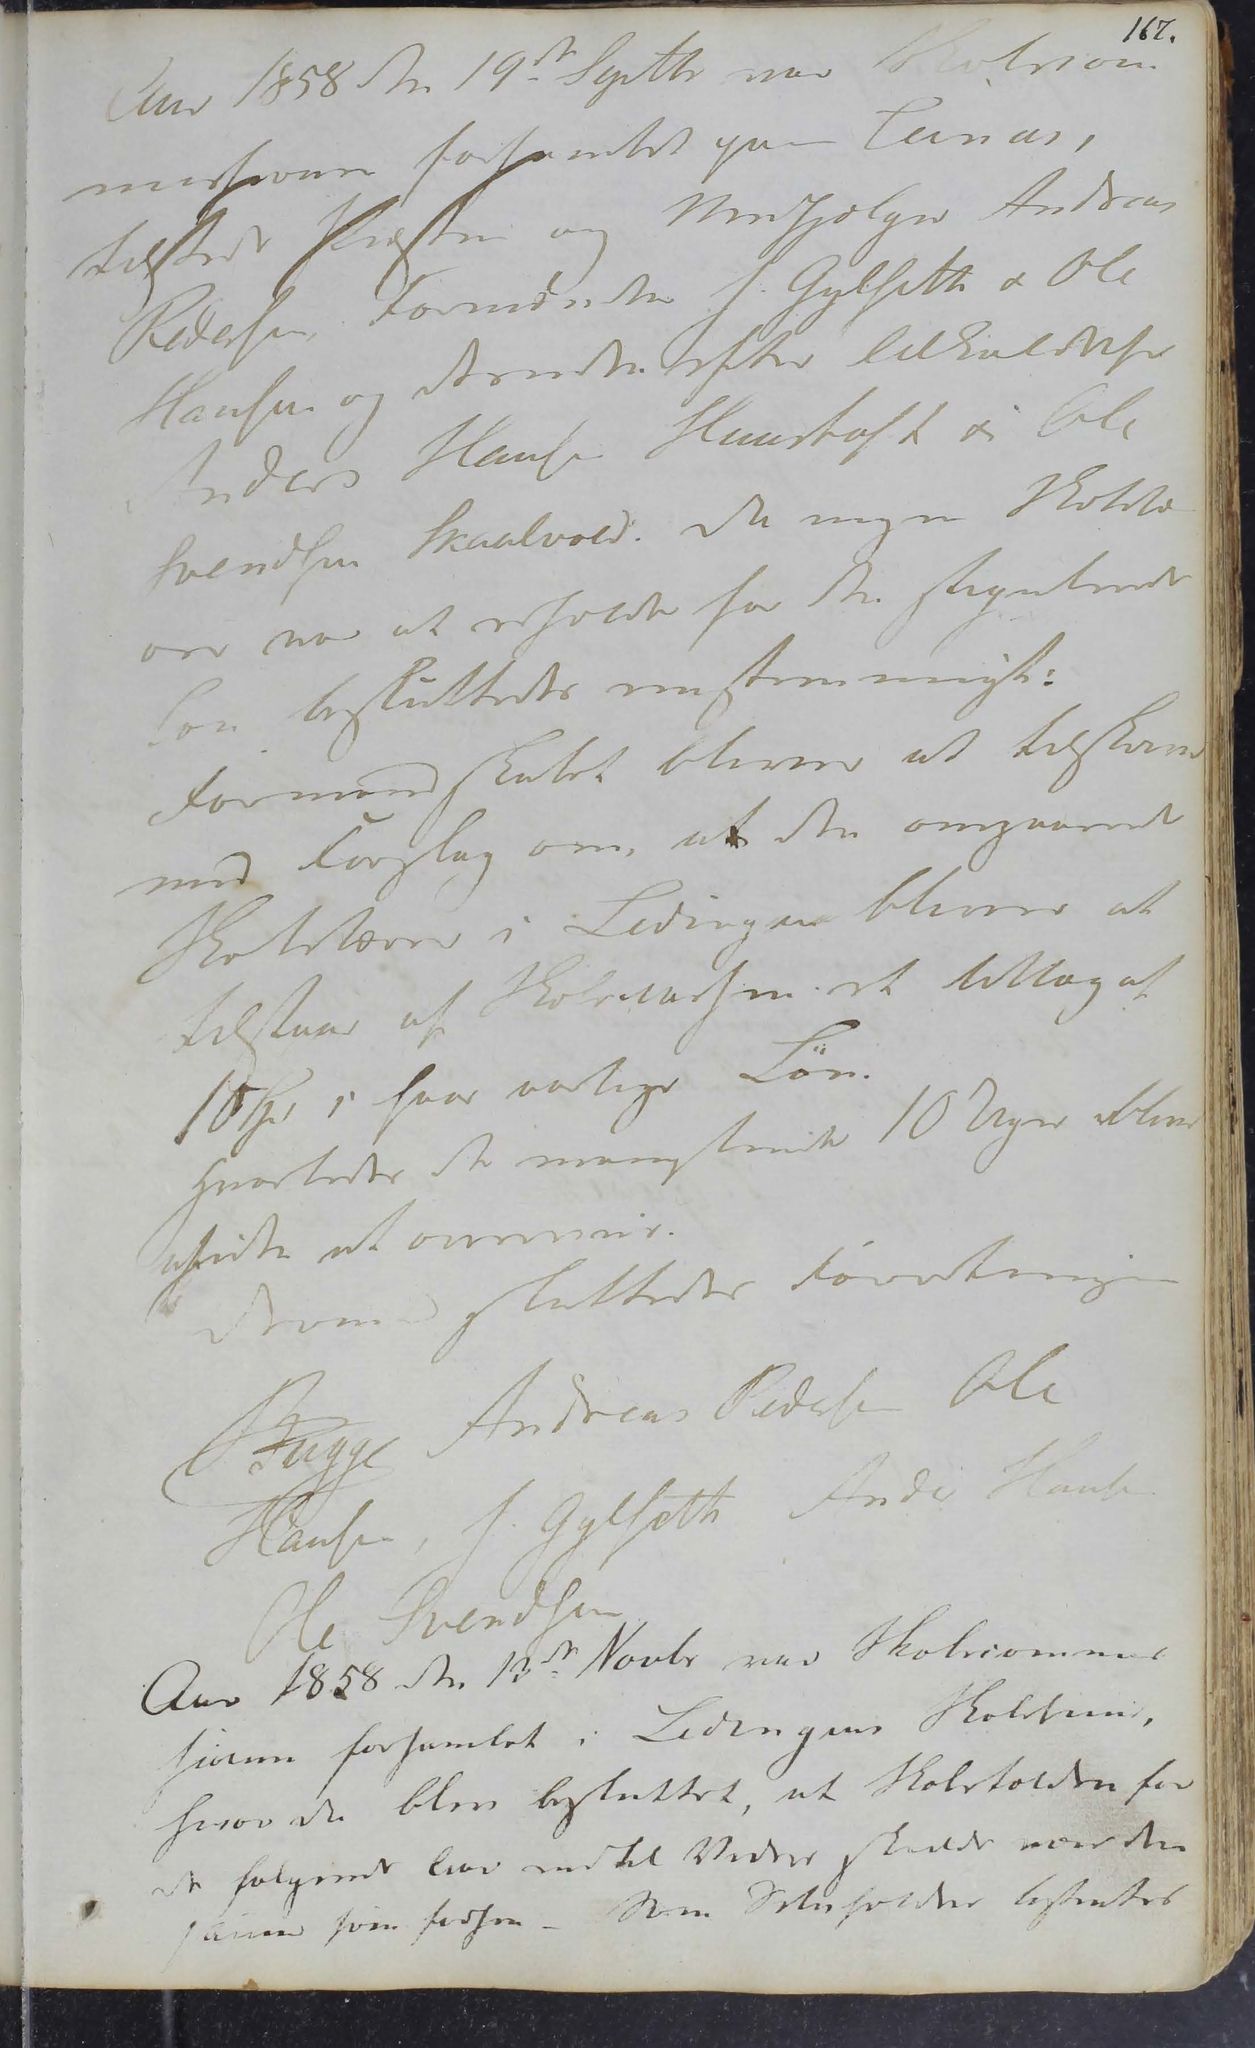 167.
Aar 1858 den 19de Septbr var Skolecom
missionen forsamlet paa Leinæs,
tilstede Præsten og Medhjælper Andreas
Pedersen, Formændene J. Gylseth & Ole
Hansen og desuden efter Tilkaldelse
Anders Hansen & Ole
Svendsen Skaalvold. Da ingen Skolelæ
rer var at erholde for den stipulerede
Løn besluttedes eenstemmigt:
Formandskabet bliver at tilskrive
med Forslag om, at den omgaaende
Skolelærer i Ledingen bliver at
tilstaae af Skolecassen et Tillæg af
10 Spd i hver aarlige Løn.
Hvorledes de manglende 10 Uger blive
at
Dermed sluttedes Forretningen
Bugge Andreas Pedersen Ole
Hansen, J. Gylseth Anders Hansen
Ole Svendsen
Aar 1858 den 13de Novbr var Skolecommis
sionen forsamlet i Ledingens Skolehuus,
hvor det blev besluttet, at Skoletolden for
det følgende Aar indtil Videre skulde være den
samme som forhen - Som bestemtes